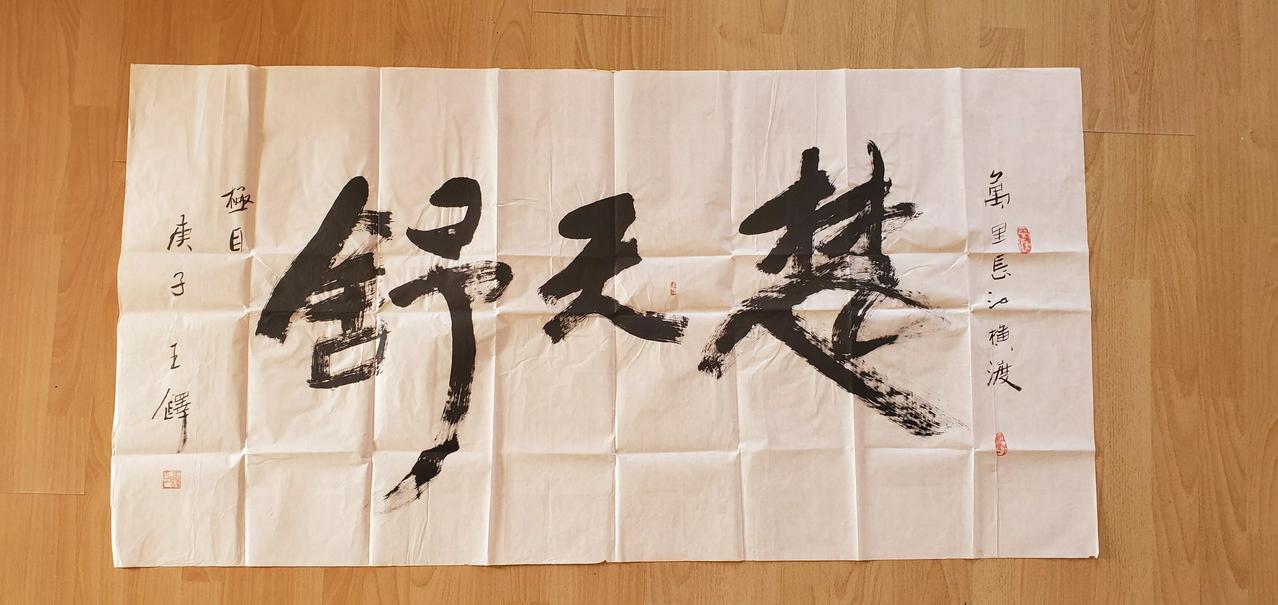 萬里長江橫渡
楚天舒
極目
庚子王鐸